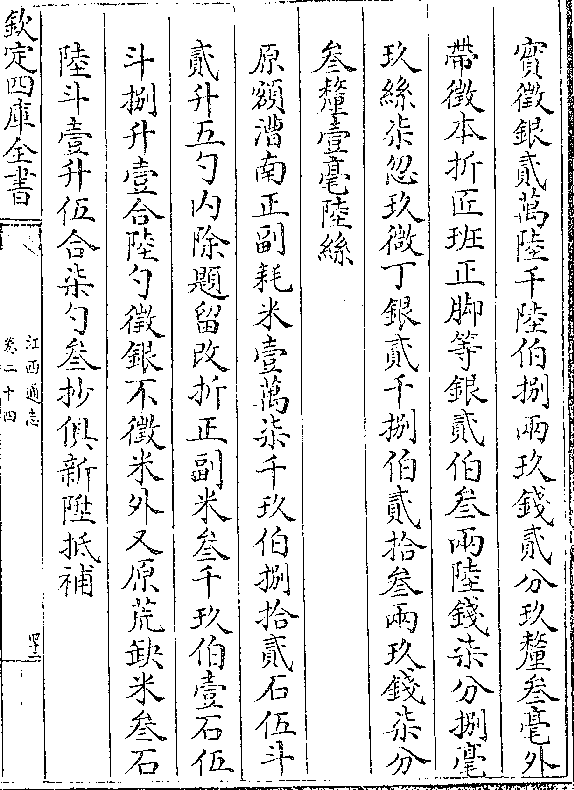 實徵銀貳萬陸千陸伯捌兩玖錢貳分玖釐叁毫外
帶徵本折匠班正脚等銀貳伯叁兩陸錢柒分捌毫
玖絲柒忽玖微丁銀貳千捌伯貳拾叁兩玖錢柒分
叁釐壹毫陸絲
原額漕南正副耗米壹萬柒千玖伯捌拾貳石伍斗
貳升五勺内除題留改折正副米叁千玖伯壹石伍
斗捌升壹合陸勺徵銀不徵米外又原荒缺米叁石
陸斗壹升伍合柒勺叁抄俱新陞抵補
欽定四庫全書
江西通志
卷二十四